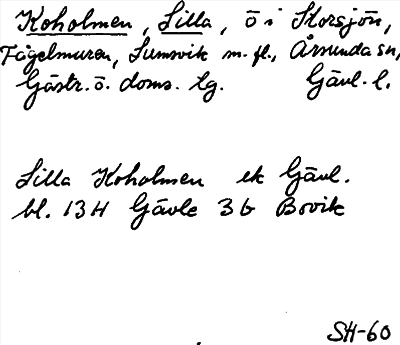 Koholmen, Lilla, ö i Storsjön,
Fågelmuren, Sumsvik m. fl., Årsunda sn,
Gästr. ö. doms. tg. Gävl. l.
Lilla Koholmen ek Gävl.
bl. 13 H Gävle 3 b Bovik
SH-60